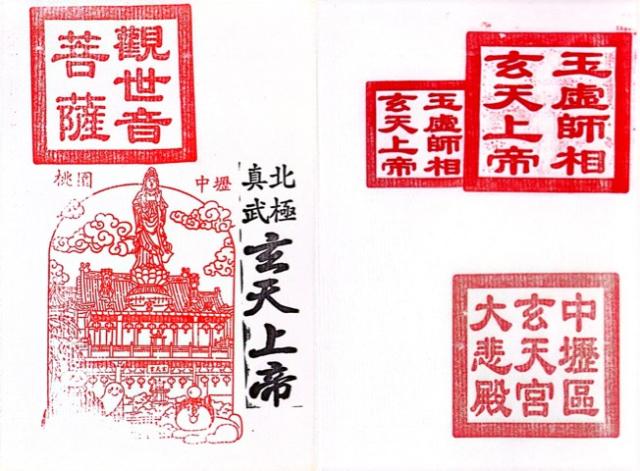 觀世音
菩薩
桃園 中壢
北極
真武
玄天上帝
玉虛師相
玄天上帝
玉虛師相
玄天上帝
中壢區
玄天宮
大悲殿